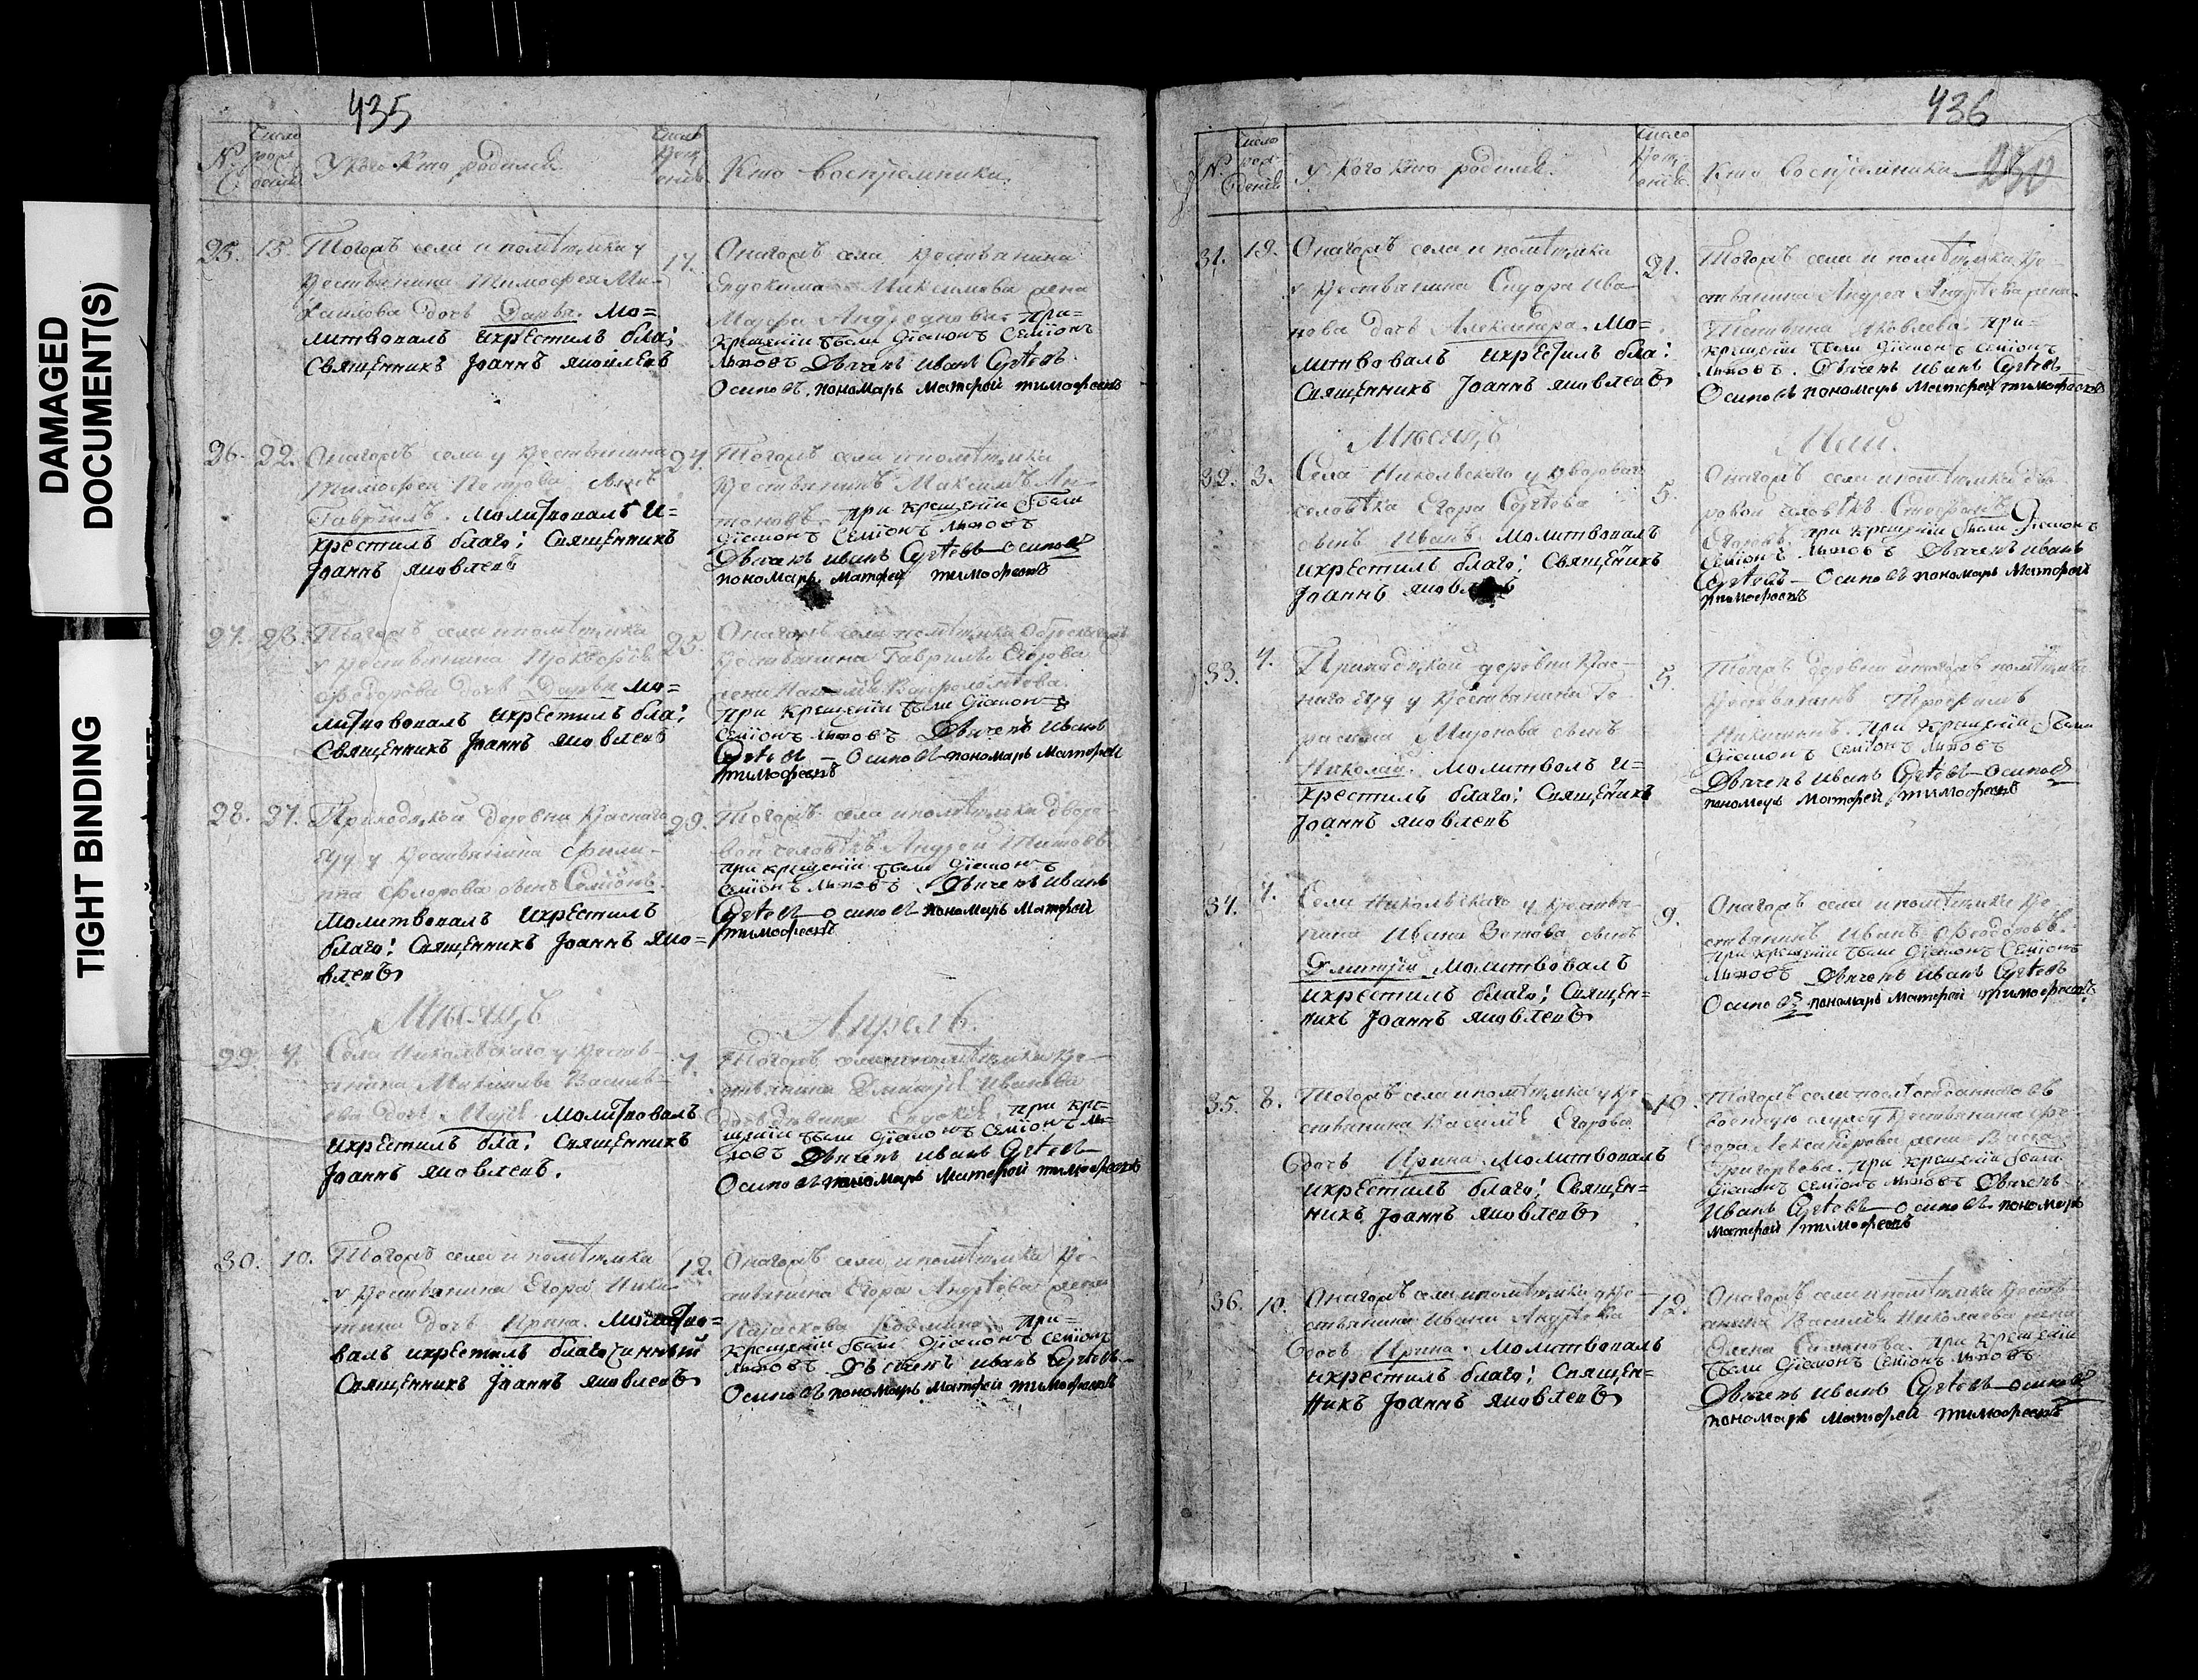 DAMAGED
DOCUMENT(S)
TIGHT BINDING
435
№
Число
рож
денія
У кого кто родился
Число
крещ
енія
Кто воспріемники
25. 15. Тогожъ села и помѣщика у
крестьянина Тимофея Ми-
хаилова дочь Дарья. Мо=
литвовалъ икрестилъ бла:
Священникъ Іоаннъ Яковлевъ
17.
Онагожъ села крестьянина
Евдокима Максимова жена
Марфа Андреянова. При=
крещеніи были діаконъ Семіонъ
Дьячекъ иванъ Сергѣевъ
Осиповъ. пономарь Матфей тимофеевъ
26. 22. Онагожъ села у крестьянина
Тимофея Петрова сынъ
Гавріилъ. Молитвовалъ и=
крестилъ благо: Священникъ
Іоаннъ яковлевъ
24.
Тогожъ села ипомѣщика
крестьянинъ Максимъ Ан-
тоновъ. при крещеніи были
діаконъ Семіонъ
Дьячекъ иванъ Сергѣевъ Осиповъ
пономарь Матфей тимофеевъ
27. 23. Тогожъ села ипомѣщика
у крестьянина Прокофія
Федорова дочь Дарья мо=
литвовалъ икрестилъ бла:
Священникъ Іоаннъ яковлевъ
25.
Онагожъ села помѣщика
крестьянина Гаврилы Егорова
жена Наталья Варфоломѣева.
при крещеніи были діаконъ
Семіонъ Дьячекъ Иванъ
Сергѣевъ - Осиповъ пономарь Матфей
тимофеевъ
28. 27. Приходской деревни Краснаго
у крестьянина Фили-
ппа Флорова сынъ Семіонъ.
Молитвовалъ икрестилъ
благо: Священникъ Іоаннъ яко=
влевъ
29.
Тогожъ села ипомѣщика дворо-
вой человѣкъ Андрей Титовъ
при крещеніи были діаконъ
Семіонъ Дьячекъ иванъ
Сергѣевъ осиповъ пономарь Матфей
тимофеевъ
Мѣсяцъ
Апрель.
29. 4. Села Никольскаго у крестья-
янина Михаилы Василь-
ева дочь молитвовалъ
икрестилъ бла: Священникъ
Іоаннъ яковлевъ.
7.
Тогожъ села ипомѣщика кре-
стьянина Дмитрія Иванова
при кре=
щеніи были діаконъ Семіонъ
Дьячекъ иванъ Сергѣевъ
Осиповъ пономарь Матфей тимофеевъ
30. 10. Тогожъ села и помѣщика
у крестьянина Егора Ники-
тина дочь Ирина. Молитво=
валъ икрестилъ благочинный
Священникъ Іоаннъ яковлевъ
12.
Онагожъ села ипомѣщика кре-
стьянина Егора Андрѣева жена
при=
крещеніи были діаконъ Семіонъ
Дьячекъ иванъ Сергѣевъ
Осиповъ пономарь Матфей тимофеевъ
436
№
Число
рож
денія
У кого кто родился.
Число
крещ
енія
Кто воспріемники
31. 19. Онагожъ села и помѣщика
у крестьянина Сидора Ива
нова дочь Александра. Мо=
литвовалъ икрестилъ бла:
Священникъ Іоаннъ яковлевъ
21.
Тогожъ села и помѣщика кре-
стьянина Андрея Андрѣева жена
Татьяна Яковлева. при=
крещеніи были діаконъ Семіонъ
Дьячекъ иванъ Сергѣевъ
Осиповъ пономарь Матфей тимофеевъ
Мѣсяцъ
Май.
32. 3. Села Никольскаго у двороваго
человѣка Егора Сергѣева
сынъ Иванъ. молитвовалъ
икрестилъ благо: Священникъ
Іоаннъ яковлевъ
5.
Онагожъ села ипомѣщика дво
ровой человѣкъ Стефанъ
Егоровъ. при крещеніи были Діаконъ
Семіонъ Дьячекъ иванъ
Сергѣевъ - Осиповъ пономарь Матфей
тимофеевъ
33. 4. Приходской деревни Крас-
наго у крестьянина Ге-
расима Миронова сынъ
Николай. Молитволъ и=
крестилъ благо: Священникъ
Іоаннъ яковлевъ
5.
Тоежъ деревни итогожъ помѣщика
крестьянинъ Трофимъ
Никитинъ. при крещеніи были
діаконъ Семіонъ
Дьячекъ иванъ Сергѣевъ Осиповъ
пономарь Матфей тимофеевъ
34. 7. Села Никольскаго у крестья-
нина Ивана Зотова сынъ
Дмитрій Молитвовалъ
икрестилъ благо: Священ=
никъ Іоаннъ яковлевъ
9.
Онагожъ села ипомѣщика кре-
стьянинъ Иванъ Феодоровъ.
при крещеніи были діаконъ Семіонъ
Дьячекъ иванъ Сергѣевъ
Осиповъ пономарь Матфей тимофеевъ
35. 8. Тогожъ села ипомѣщика у кре-
стьянина Василія Егорова
дочь Ирина. Молитвовалъ
икрестилъ благо: Священ=
никъ Іоаннъ яковлевъ
10.
Тогожъ села отданнаго въ
военную службу крестьянина Фе-
дора Александрова жена Васса
Григорьева. при крещеніи были
діаконъ Семіонъ Дьячекъ
Иванъ Сергѣевъ осиповъ пономарь
Матфей тимофеевъ
36. 10. Онагожъ села ипомѣщика у кре-
стьянина Ивана Андрѣева
дочь Ирина. Молитвовалъ
икрестилъ благо: Священ=
никъ Іоаннъ яковлевъ
12.
Онагожъ села ипомѣщика кресть-
янина Василія Николаева жена
при крещеніи
были діаконъ Семіонъ
Дьячекъ иванъ Сергѣевъ осиповъ
пономарь Матфей тимофеевъ